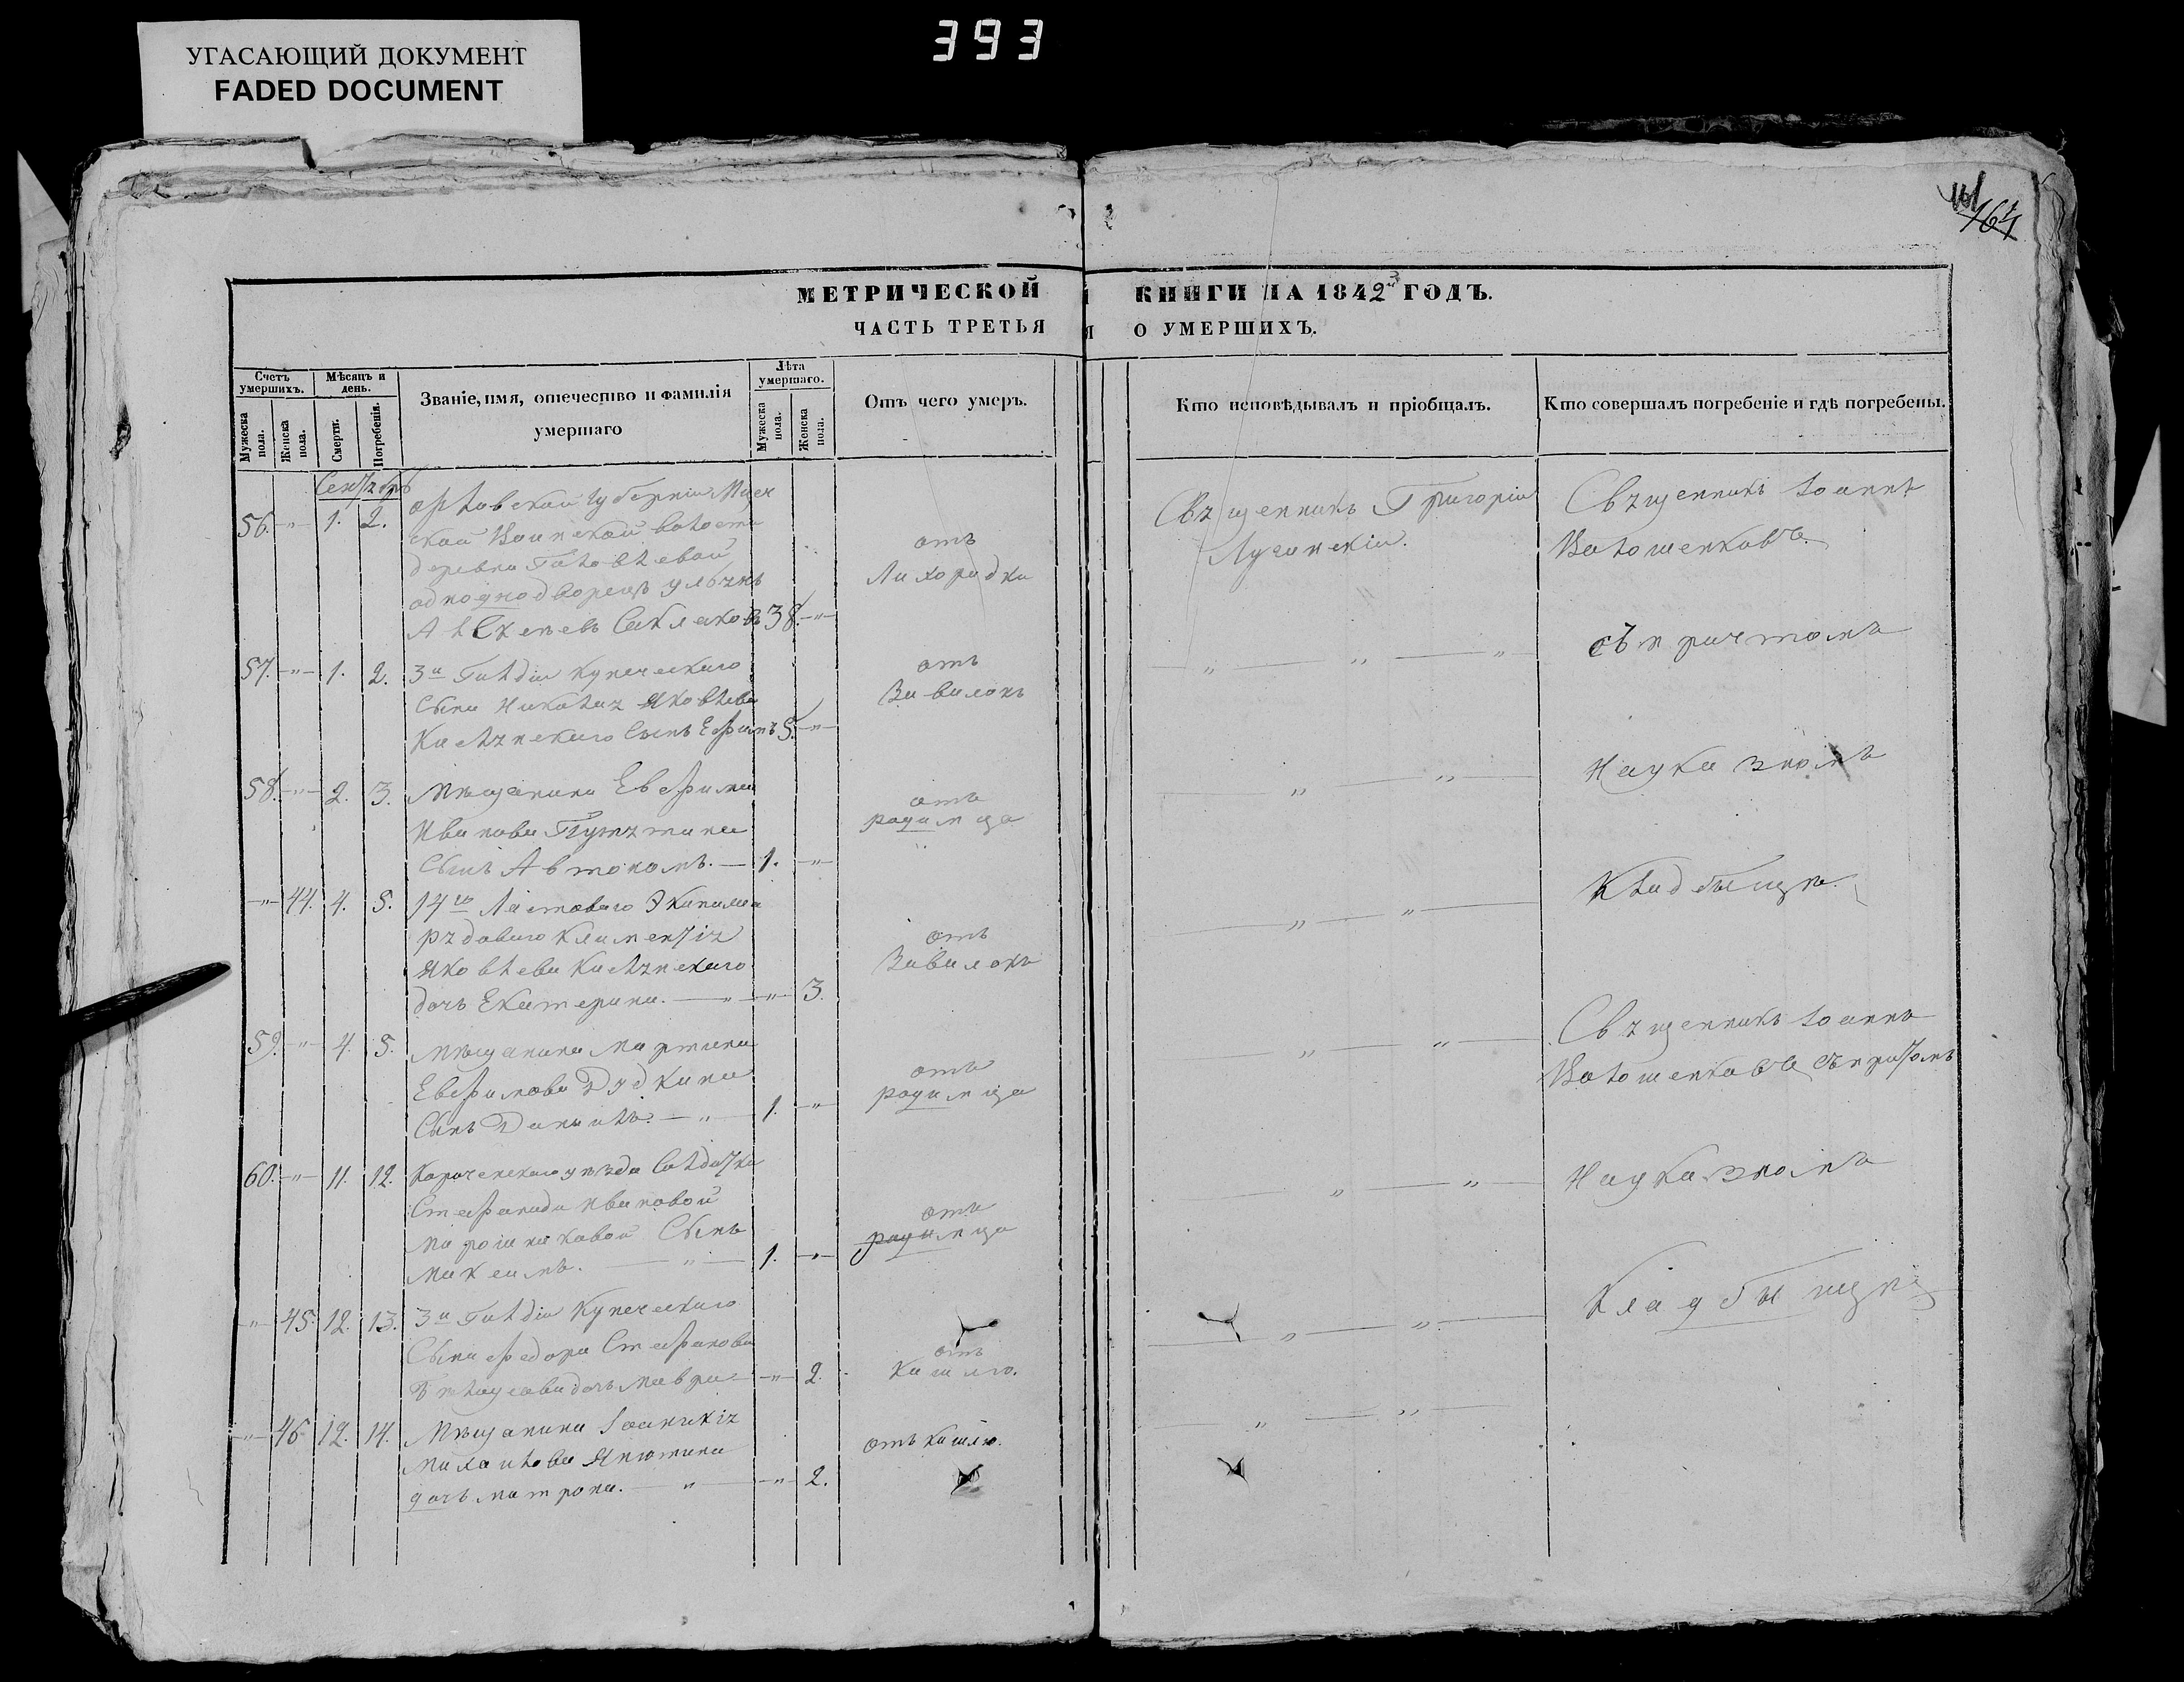 393
УГАСАЮЩИЙ ДОКУМЕНТ
FADED DOCUMENT
161
164
МЕТРИЧЕСКОЙ КНИГИ НА 1843 ГОДЪ.
ЧАСТЬ ТРЕТЬЯ О УМЕРШИХЪ.
Счетъ умершихъ.
Мѣсяцъ и день.
Званіе, имя, отечество и фамилія умершаго
Лѣта умершаго.
Отъ чего умеръ.
Кто исповѣдывалъ и пріобщалъ.
Кто совершалъ погребеніе и гдѣ погребены.
Мужеска пола.
Женска пола.
Смерти.
Погребенія.
Мужеска пола.
Женска пола.
Сентябрь
56. -"- 1. 2. Орловской губерніи Мцен
ской Воинской волости
деревни Головлевой
однодворецъ Ульянъ
Алексѣевъ 38. -"-
отъ
Лихорадки
Священникъ Григорій
Лучинскій.
Священникъ Іоаннъ
Волошенковъ
57. -"- 1. 2. 3й Гильдіи Купеческаго
Сына Николая Яковлева
Кислянскаго Сынъ Ефимъ 5. -"-
отъ
Завалокъ
съ причтомъ
58. -"- 2. 3. Мѣщанина Евфимія
Иванова Путятина
Сынъ Автономъ. 1. -"-
отъ
родимца
На указномъ
-"- 44. 4. 5. 14го Ластоваго Экипажа
рядоваго Климентія
Яковлева Кислянскаго
дочь Екатерина. -"- 3.
отъ
Завалокъ
Кладбищѣ.
59. -"- 4. 5. Мѣщанина Мартина
Евфимова Дудкина
Сынъ Даніилъ. 1. -"-
отъ
родимца
Священникъ Іоаннъ
Волошенковъ съ причтомъ
60. -"- 11. 12. Корочанскаго уѣзда Солдатки
Стефаниды Ивановой
Мирошниковой Сынъ
Максимъ. 1. -"-
отъ
родимца
На указномъ
-"- 45. 12. 13. 3й Гильдіи Купеческаго
Сына Федора Стефанова
дочь Мавра -"- 2.
отъ
Кашлю.
Кладбищѣ
-"- 46. 12. 14. Мѣщанина Іоанникія
Михаилова Янютина
дочь Матрона. -"- 2.
отъ кашлю.